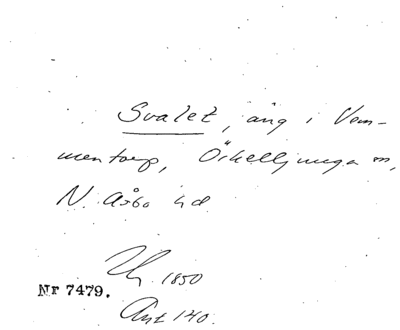 Svalet, äng i Vem-
mentorp, Örkelljunga sn,
N. Åsbo hd.
1850
Nr 7479.
Ant 140.